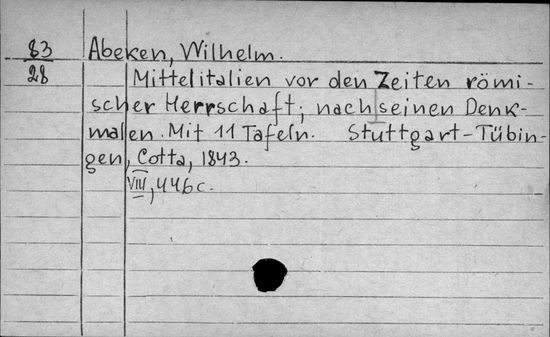 83 Abeken, Wilhelm.
28
Mittelitalien vor den Zeiten römi-
scher Herrschaft; nach seinen Denk-
malen. Mit 11 Tafeln. Stuttgart-Tübin-
gen, Cotta, 1843.
VIII, 446 c.